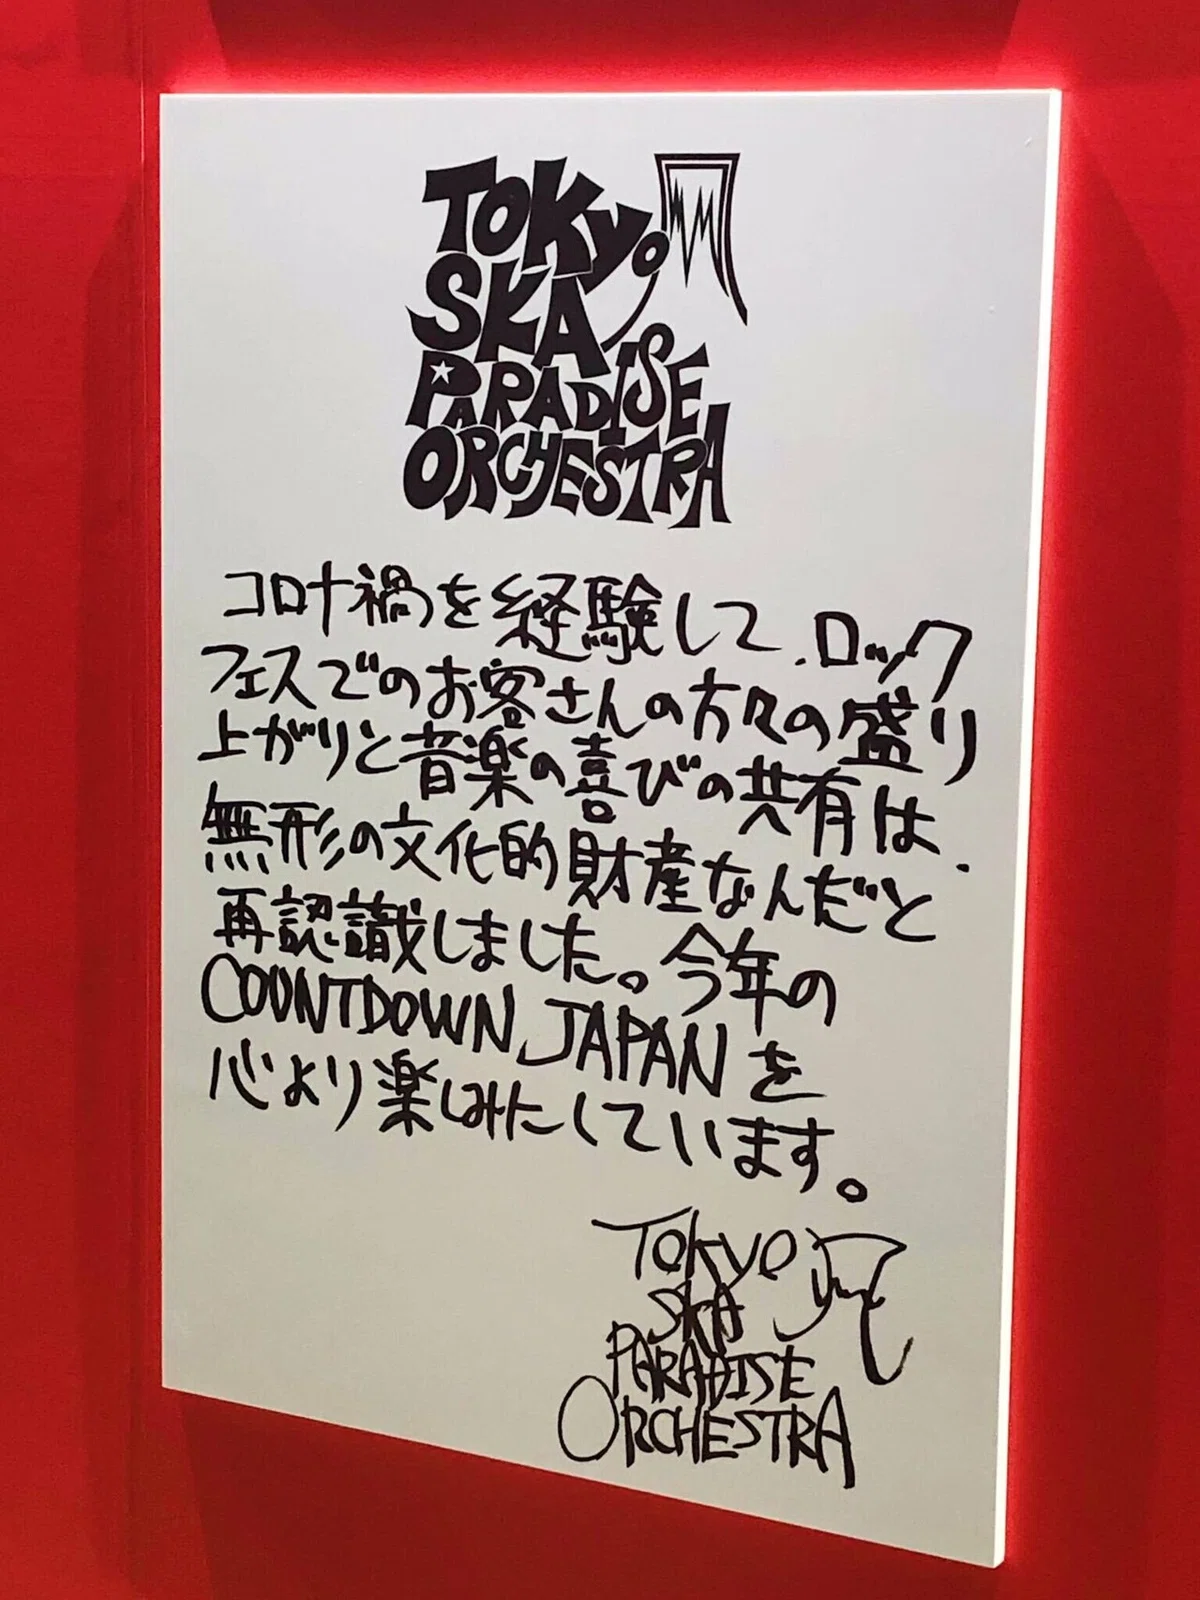 TOKYO
SKA
PARADISE
ORCHESTRA
コロナ禍を経験して、ロック
フェスでのお客さんの方々の盛り
上がりと音楽の喜びの共有は、
無形の文化的財産なんだと
再認識しました。今年の
COUNTDOWN JAPANを
心より楽しみにしています。
TOKYO
SKA
PARADISE
ORCHESTRA